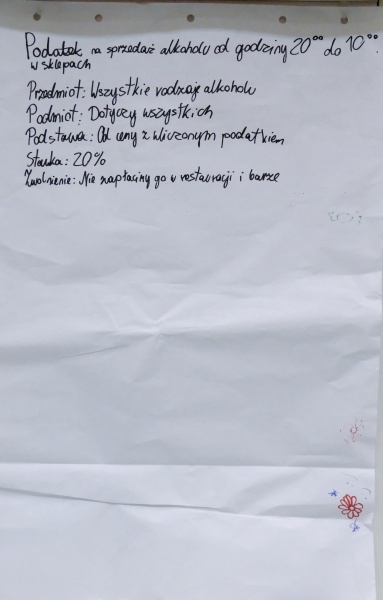 Podatek na sprzedaż alkoholu od godziny 20⁰⁰ do 10⁰⁰.
w sklepach
Przedmiot: Wszystkie rodzaje alkoholu
Podmiot: Dotyczy wszystkich
Podstawa: Od ceny z wliczonym podatkiem
Stawka: 20%
Zwolnienie: Nie zapłacimy go w restauracji i barze